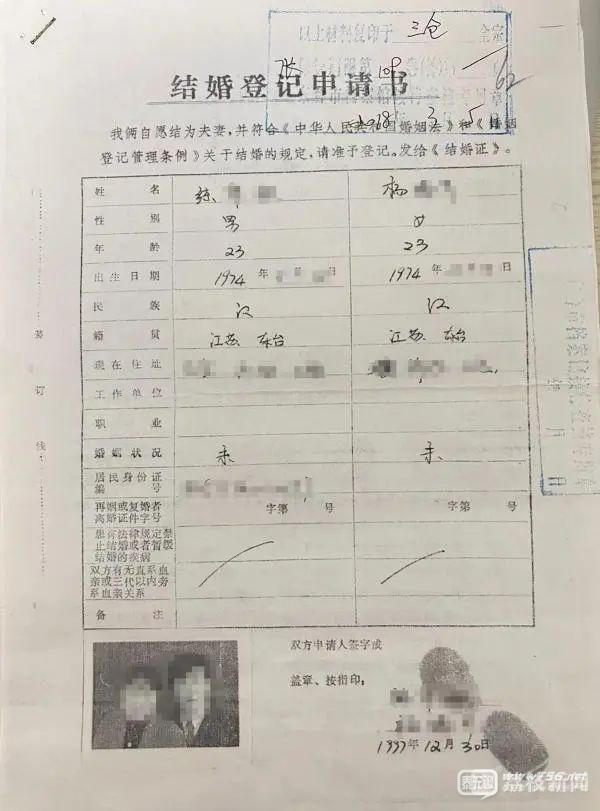 以上材料复印于 三仓 全宗
109
62
2018 3 5
结婚登记申请书
我俩自愿结为夫妻,并符合《中华人民共和国婚姻法》和《婚姻
登记管理条例》关于结婚的规定,请准予登记。发给《结婚证》。
姓名 杨
性别 男 女
年龄 23 23
出生日期 1974年 日 1974年 日
民族 汉 汉
籍贯 江苏 东台 江苏 东台
现在住址
工作单位
职业
婚姻状况 未 未
居民身份证
编号
再婚或复婚者
离婚证件字号 字第 号 字第 号
患有法律规定禁
止结婚或者暂缓
结婚的疾病
双方有无直系血
亲或三代以内旁
系血亲关系
备注
装订线
双方申请人签字或
盖章、按指印:
1997年12月30日
荔枝新闻